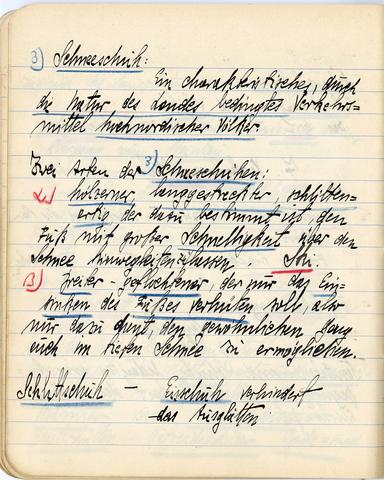 3) Schneeschuh:
Ein charakteristisches, durch
die Natur des Landes bedingtes Verkehrs-
mittel hochnordischer Völker.
Zwei Arten der 3) Schneeschuhen:
α) hölzerner langgestreckter, schlitten-
der dazu bestimmt ist, den
Fuß mit großer Schnelligkeit über den
Schnee hinweggleiten zu lassen.
β) Zweiter - geflochtener, der nur das Ein-
sinken des Fußes verhüten soll, also
nur dazu dient, den gewöhnlichen Gang
auch im tiefen Schnee zu ermöglichen.
Schlittschuh - Eisschuh verhindert
das Ausglätten